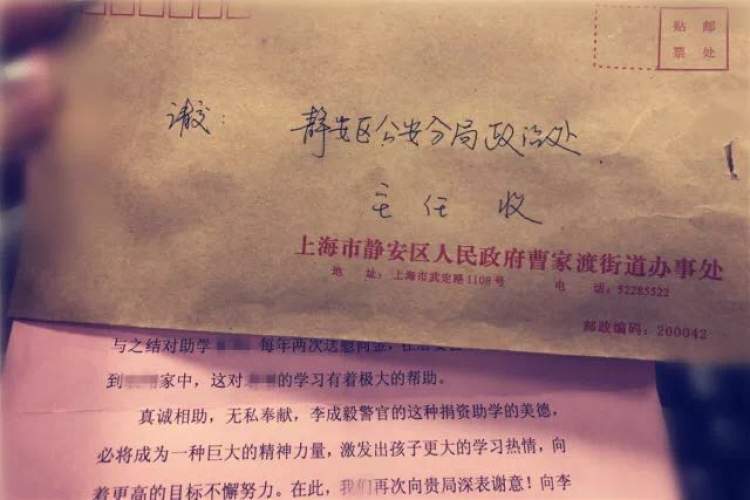 贴 邮
票 处
请交：
静安区公安分局政治处
主任 收
上海市静安区人民政府曹家渡街道办事处
地 址：上海市武定路1108号 电 话：52285522
邮政编码：200042
与之结对助学 每年两次送慰问金，
到 家中，这对 的学习有着极大的帮助。
真诚相助，无私奉献，李成毅警官的这种捐资助学的美德，
必将成为一种巨大的精神力量，激发出孩子更大的学习热情，向
着更高的目标不懈努力。在此，我们再次向贵局深表谢意！向李